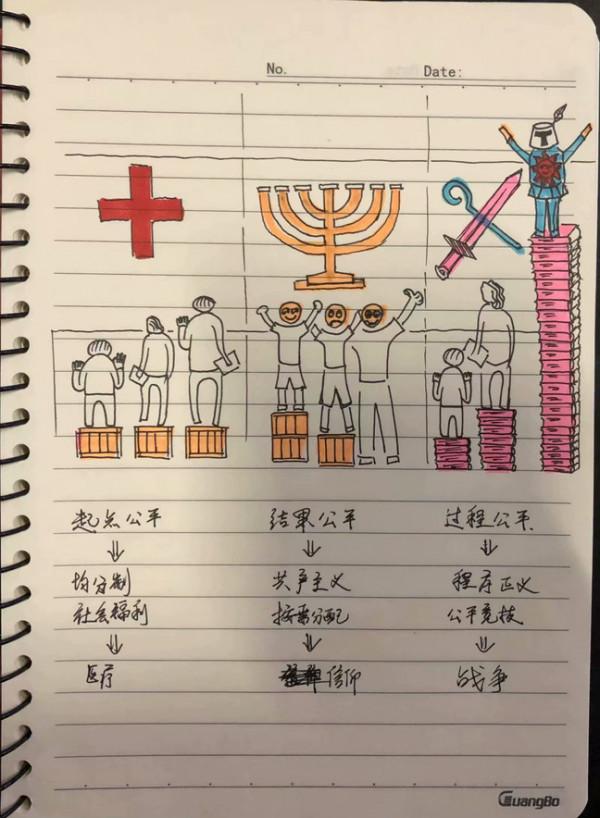 No. Date:
起点公平 结果公平 过程公平
⇓ ⇓ ⇓
均分制 共产主义 程序正义
社会福利 按需分配 公平竞技
⇓ ⇓ ⇓
医疗 信仰 战争
GuangBo